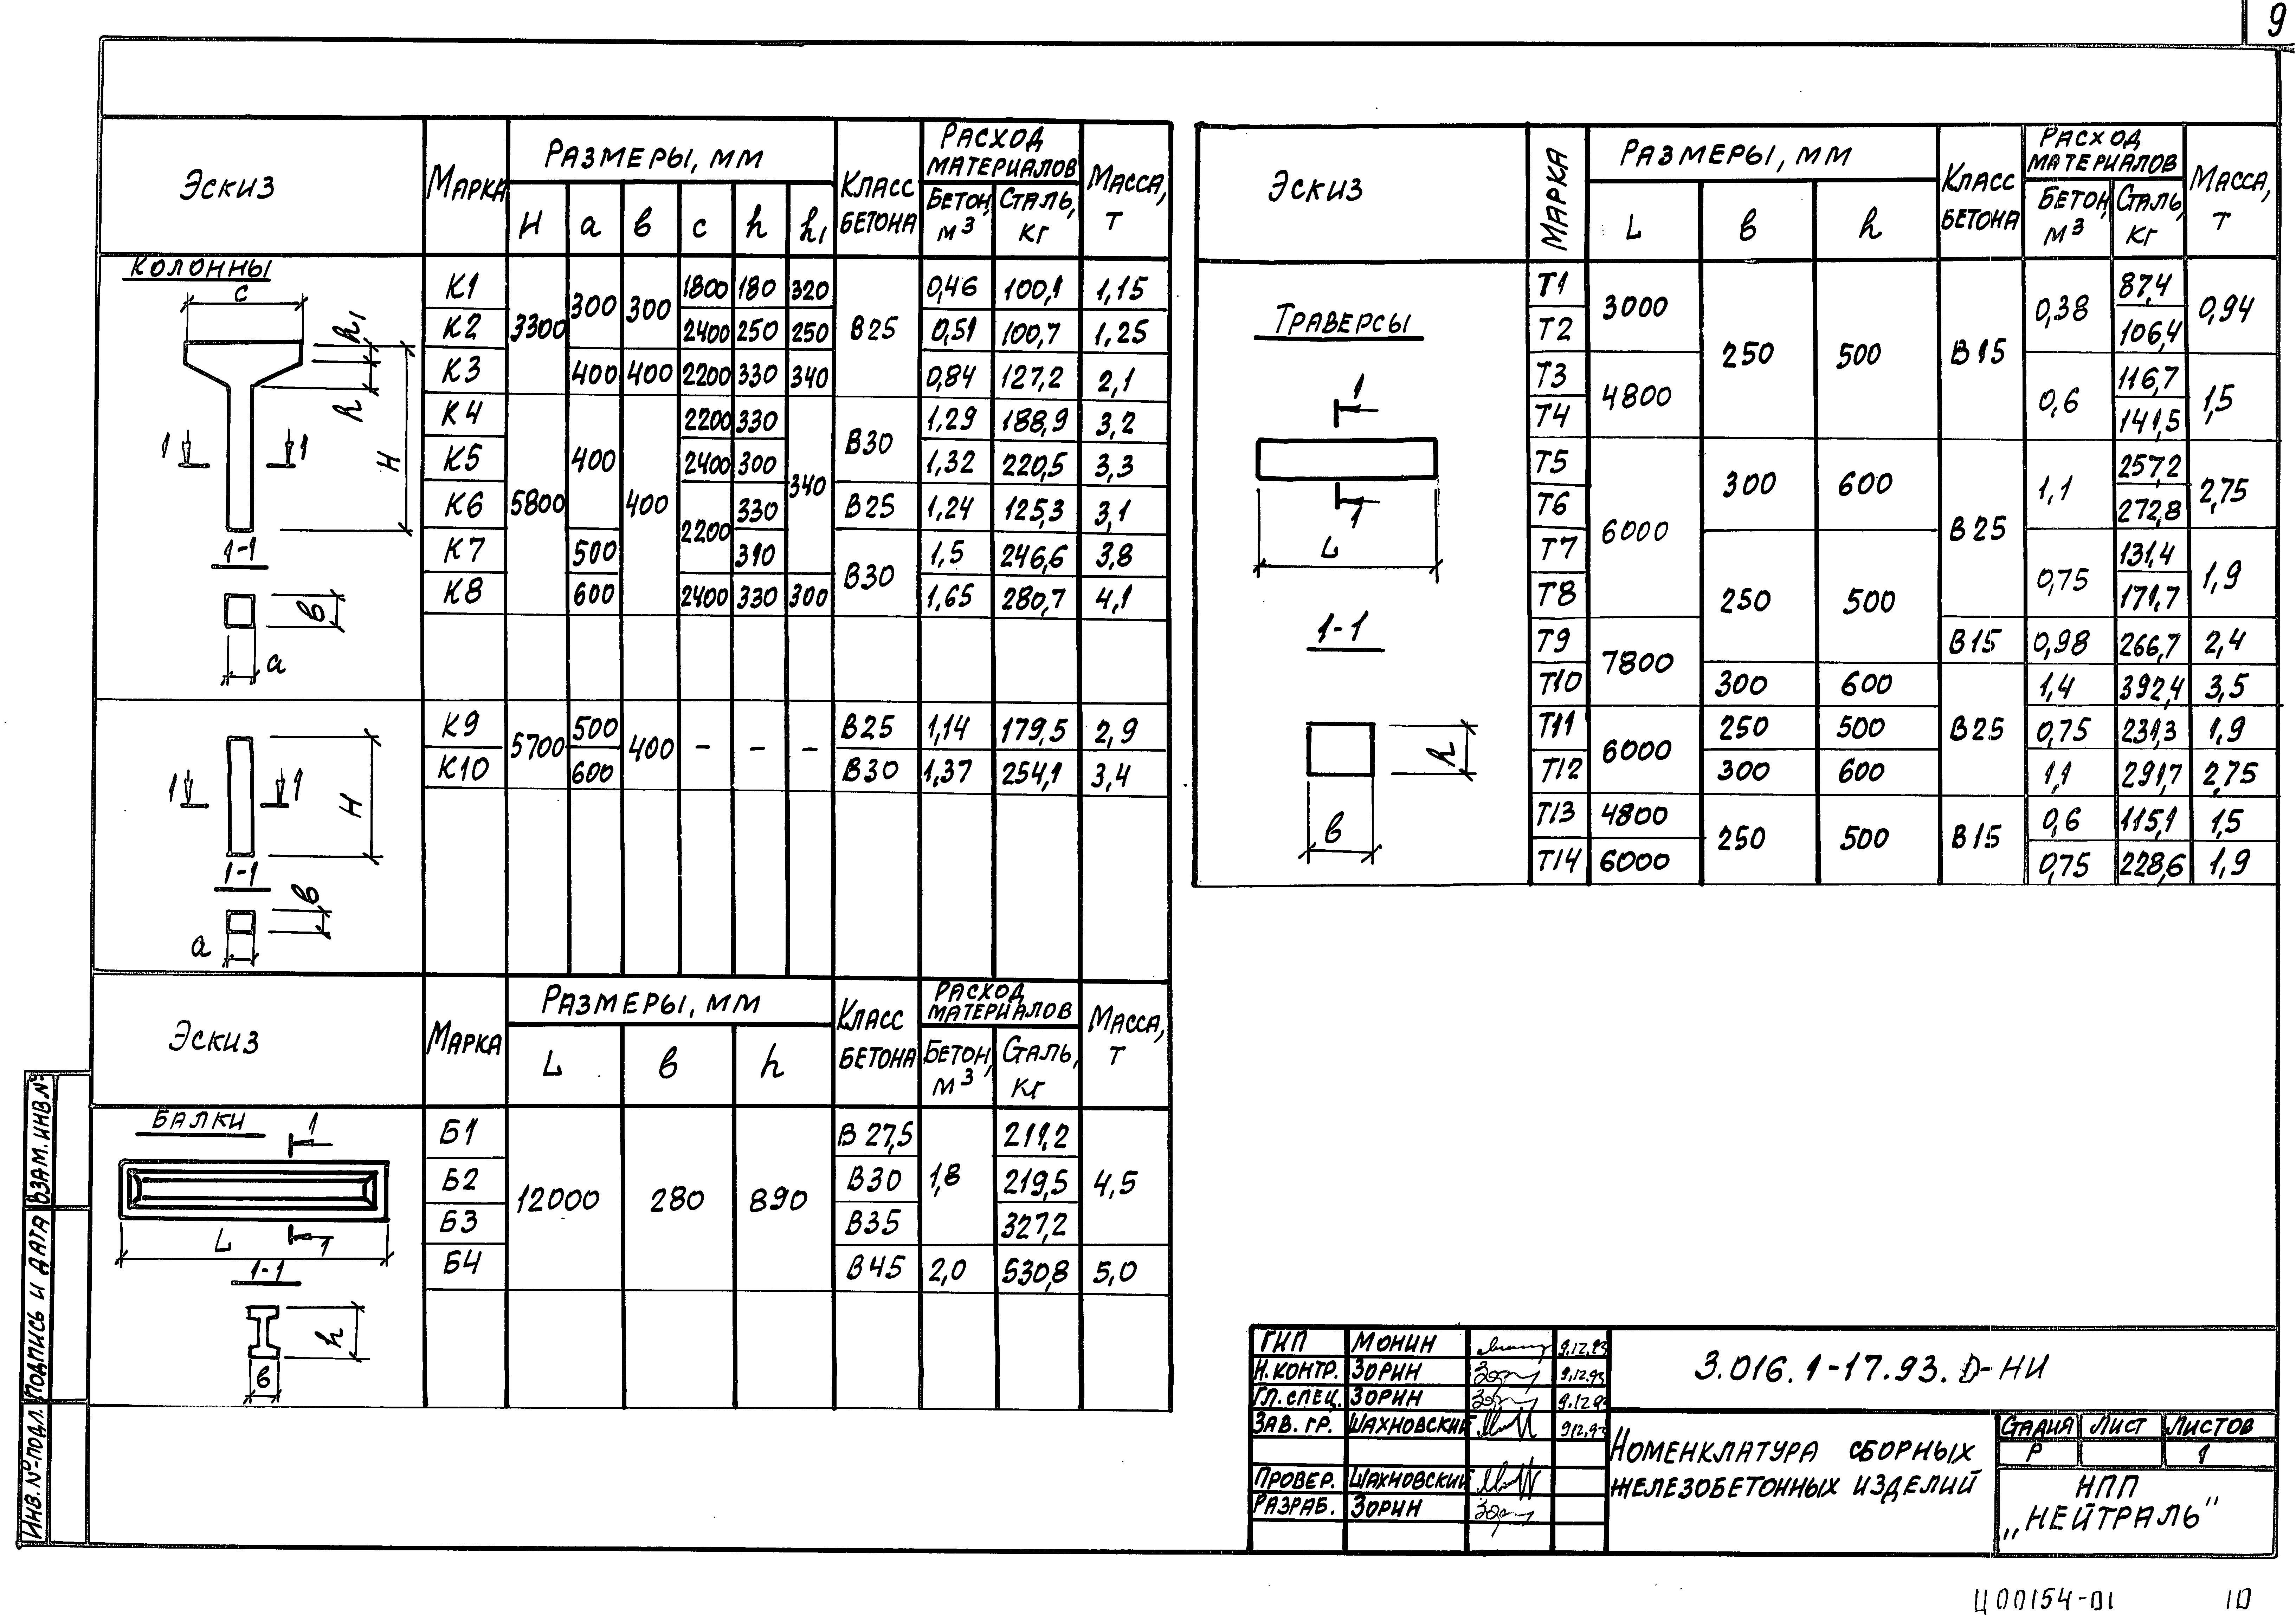 9
Эскиз Марка Размеры, мм Класс бетона Расход материалов Масса, т
H a в c h h₁ Бетон, м³ Сталь, кг
Колонны
c
h₁
h
H
1 1
1-1
в
a
К1 3300 300 300 1800 180 320 В25 0,46 100,1 1,15
К2 2400 250 250 0,51 100,7 1,25
К3 400 400 2200 330 340 0,84 127,2 2,1
К4 5800 400 400 2200 330 340 В30 1,29 188,9 3,2
К5 2400 300 1,32 220,5 3,3
К6 2200 330 В25 1,24 125,3 3,1
К7 500 310 В30 1,5 246,6 3,8
К8 600 2400 330 300 1,65 280,7 4,1
1 1
H
1-1
в
a
К9 5700 500 400 – – – В25 1,14 179,5 2,9
К10 600 В30 1,37 254,1 3,4
Эскиз Марка Размеры, мм Класс бетона Расход материалов Масса, т
L в h Бетон, м³ Сталь, кг
Балки
1
L 1
1-1
h
в
Б1 12000 280 890 В27,5 1,8 211,2 4,5
Б2 В30 219,5
Б3 В35 327,2
Б4 В45 2,0 530,8 5,0
Эскиз Марка Размеры, мм Класс бетона Расход материалов Масса, т
L в h Бетон, м³ Сталь, кг
Траверсы
1
1
L
1-1
h
в
Т1 3000 250 500 В15 0,38 87,4 0,94
Т2 106,4
Т3 4800 0,6 116,7 1,5
Т4 141,5
Т5 6000 300 600 В25 1,1 257,2 2,75
Т6 272,8
Т7 250 500 0,75 131,4 1,9
Т8 171,7
Т9 7800 В15 0,98 266,7 2,4
Т10 300 600 В25 1,4 392,4 3,5
Т11 6000 250 500 0,75 231,3 1,9
Т12 300 600 1,1 291,7 2,75
Т13 4800 250 500 В15 0,6 115,1 1,5
Т14 6000 0,75 228,6 1,9
ГИП Монин 9.12.93
Н.контр. Зорин 9.12.93
Гл.спец. Зорин 9.12.9
Зав. гр. Шахновский 9.12.93
Провер. Шахновский
Разраб. Зорин
3.016.1-17.93.0-НИ
Номенклатура сборных
железобетонных изделий
Стадия Лист Листов
Р 1
НПП
„Нейтраль"
Инв. № подл. Подпись и дата Взам. инв. №
Ц00154-01 10